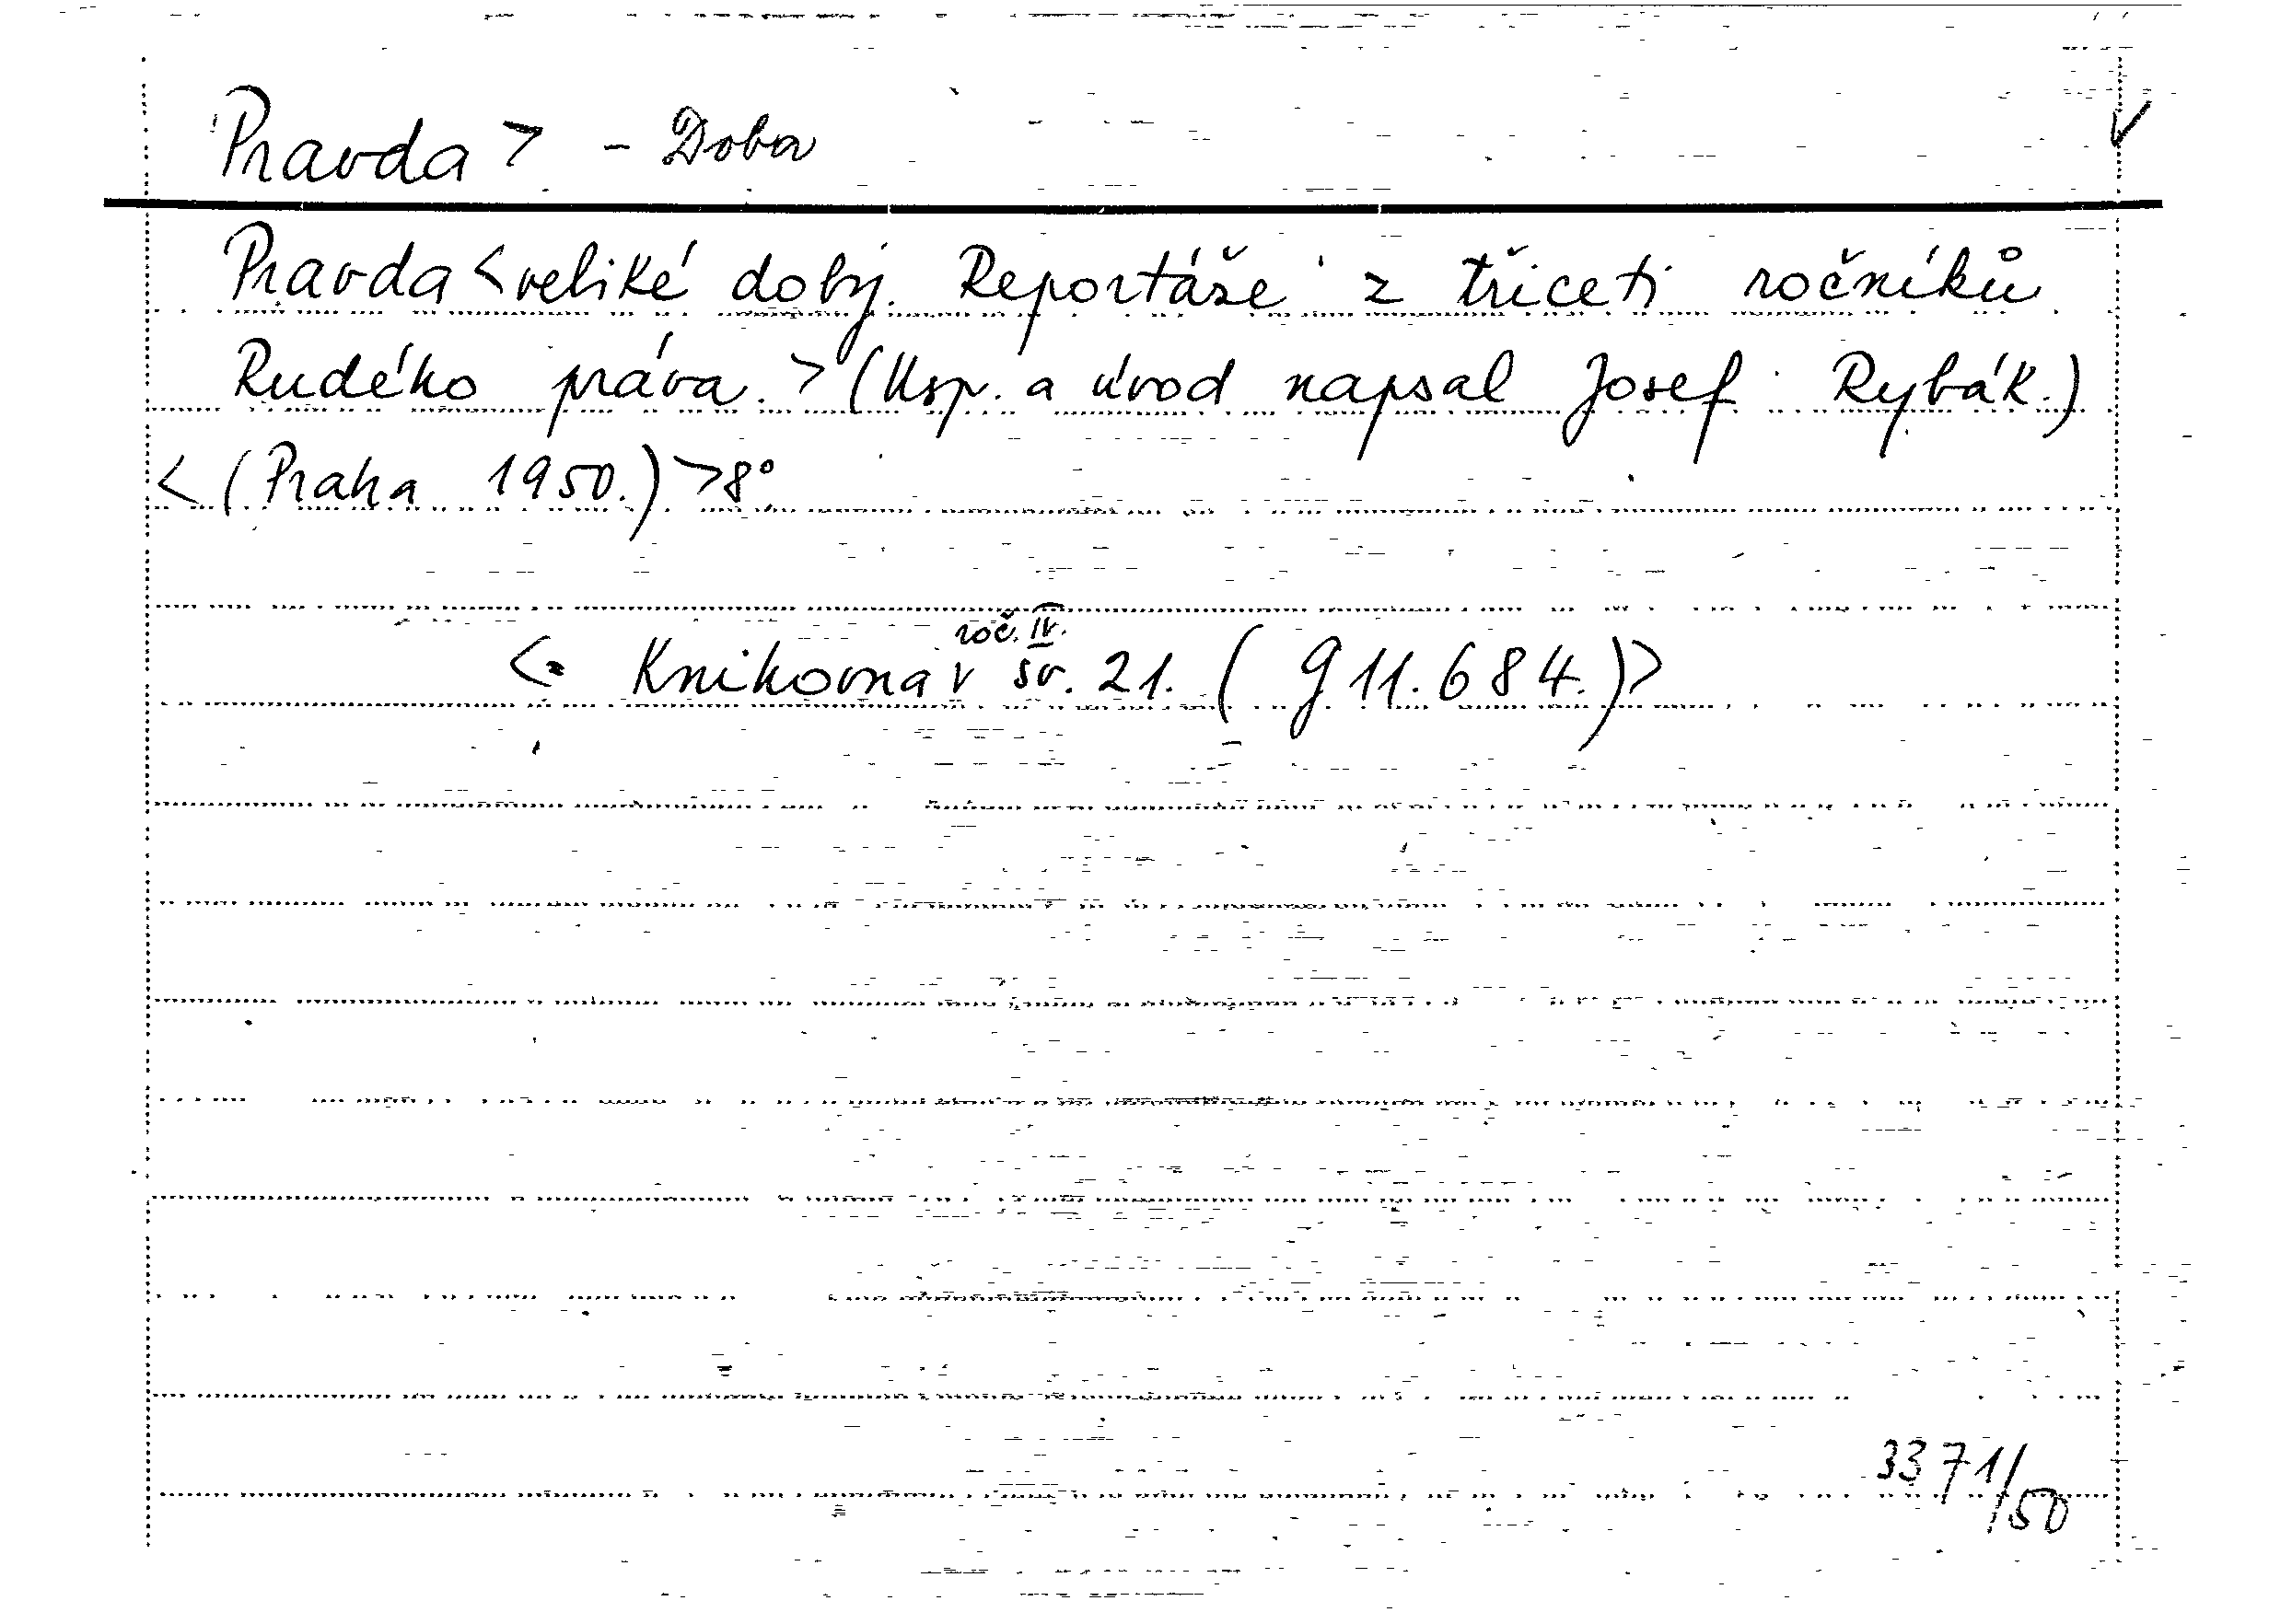 Pravda > - Doba
Pravda < veliké doby. Reportáže z třiceti ročníků
Rudého práva. > (Usp. a úvod napsal Josef Rybák.)
< (Praha 1950.) > 8°.
roč. IV.
<• Knihovna v sv. 21. ( g 11.684.)>
3371/50